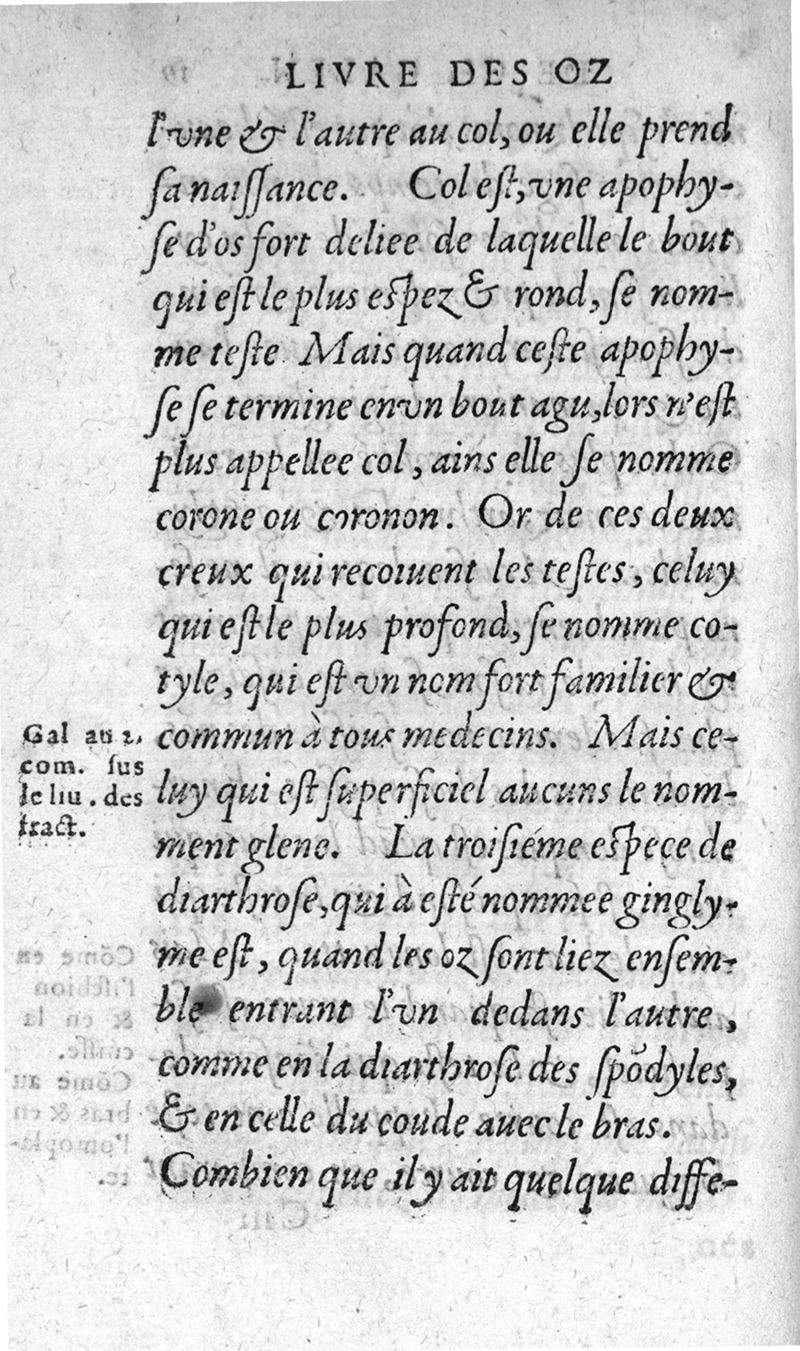 LIVRE DES OZ
l'vne & l'autre au col, ou elle prend
sa naissance. Col est, vne apophy-
se d'os fort deliee de laquelle le bout
qui est le plus espez & rond, se nom-
me teste. Mais quand ceste apophy-
se se termine en vn bout agu, lors n'est
plus appellee col, ains elle se nomme
corone ou coronon. Or de ces deux
creux qui reçoiuent les testes, celuy
qui est le plus profond, se nomme co-
tyle, qui est vn nom fort familier &
commun à tous medecins. Mais ce-
luy qui est superficiel aucuns le nom-
ment glene. La troisiéme espece de
diarthrose, qui à esté nommee gingly-
me est, quand les oz sont liez ensem-
ble entrant l'vn dedans l'autre,
comme en la diarthrose des spõdyles,
& en celle du coude auec le bras.
Combien que il y ait quelque diffe-
Gal au 1.
com. sus
le liu. des
fract.